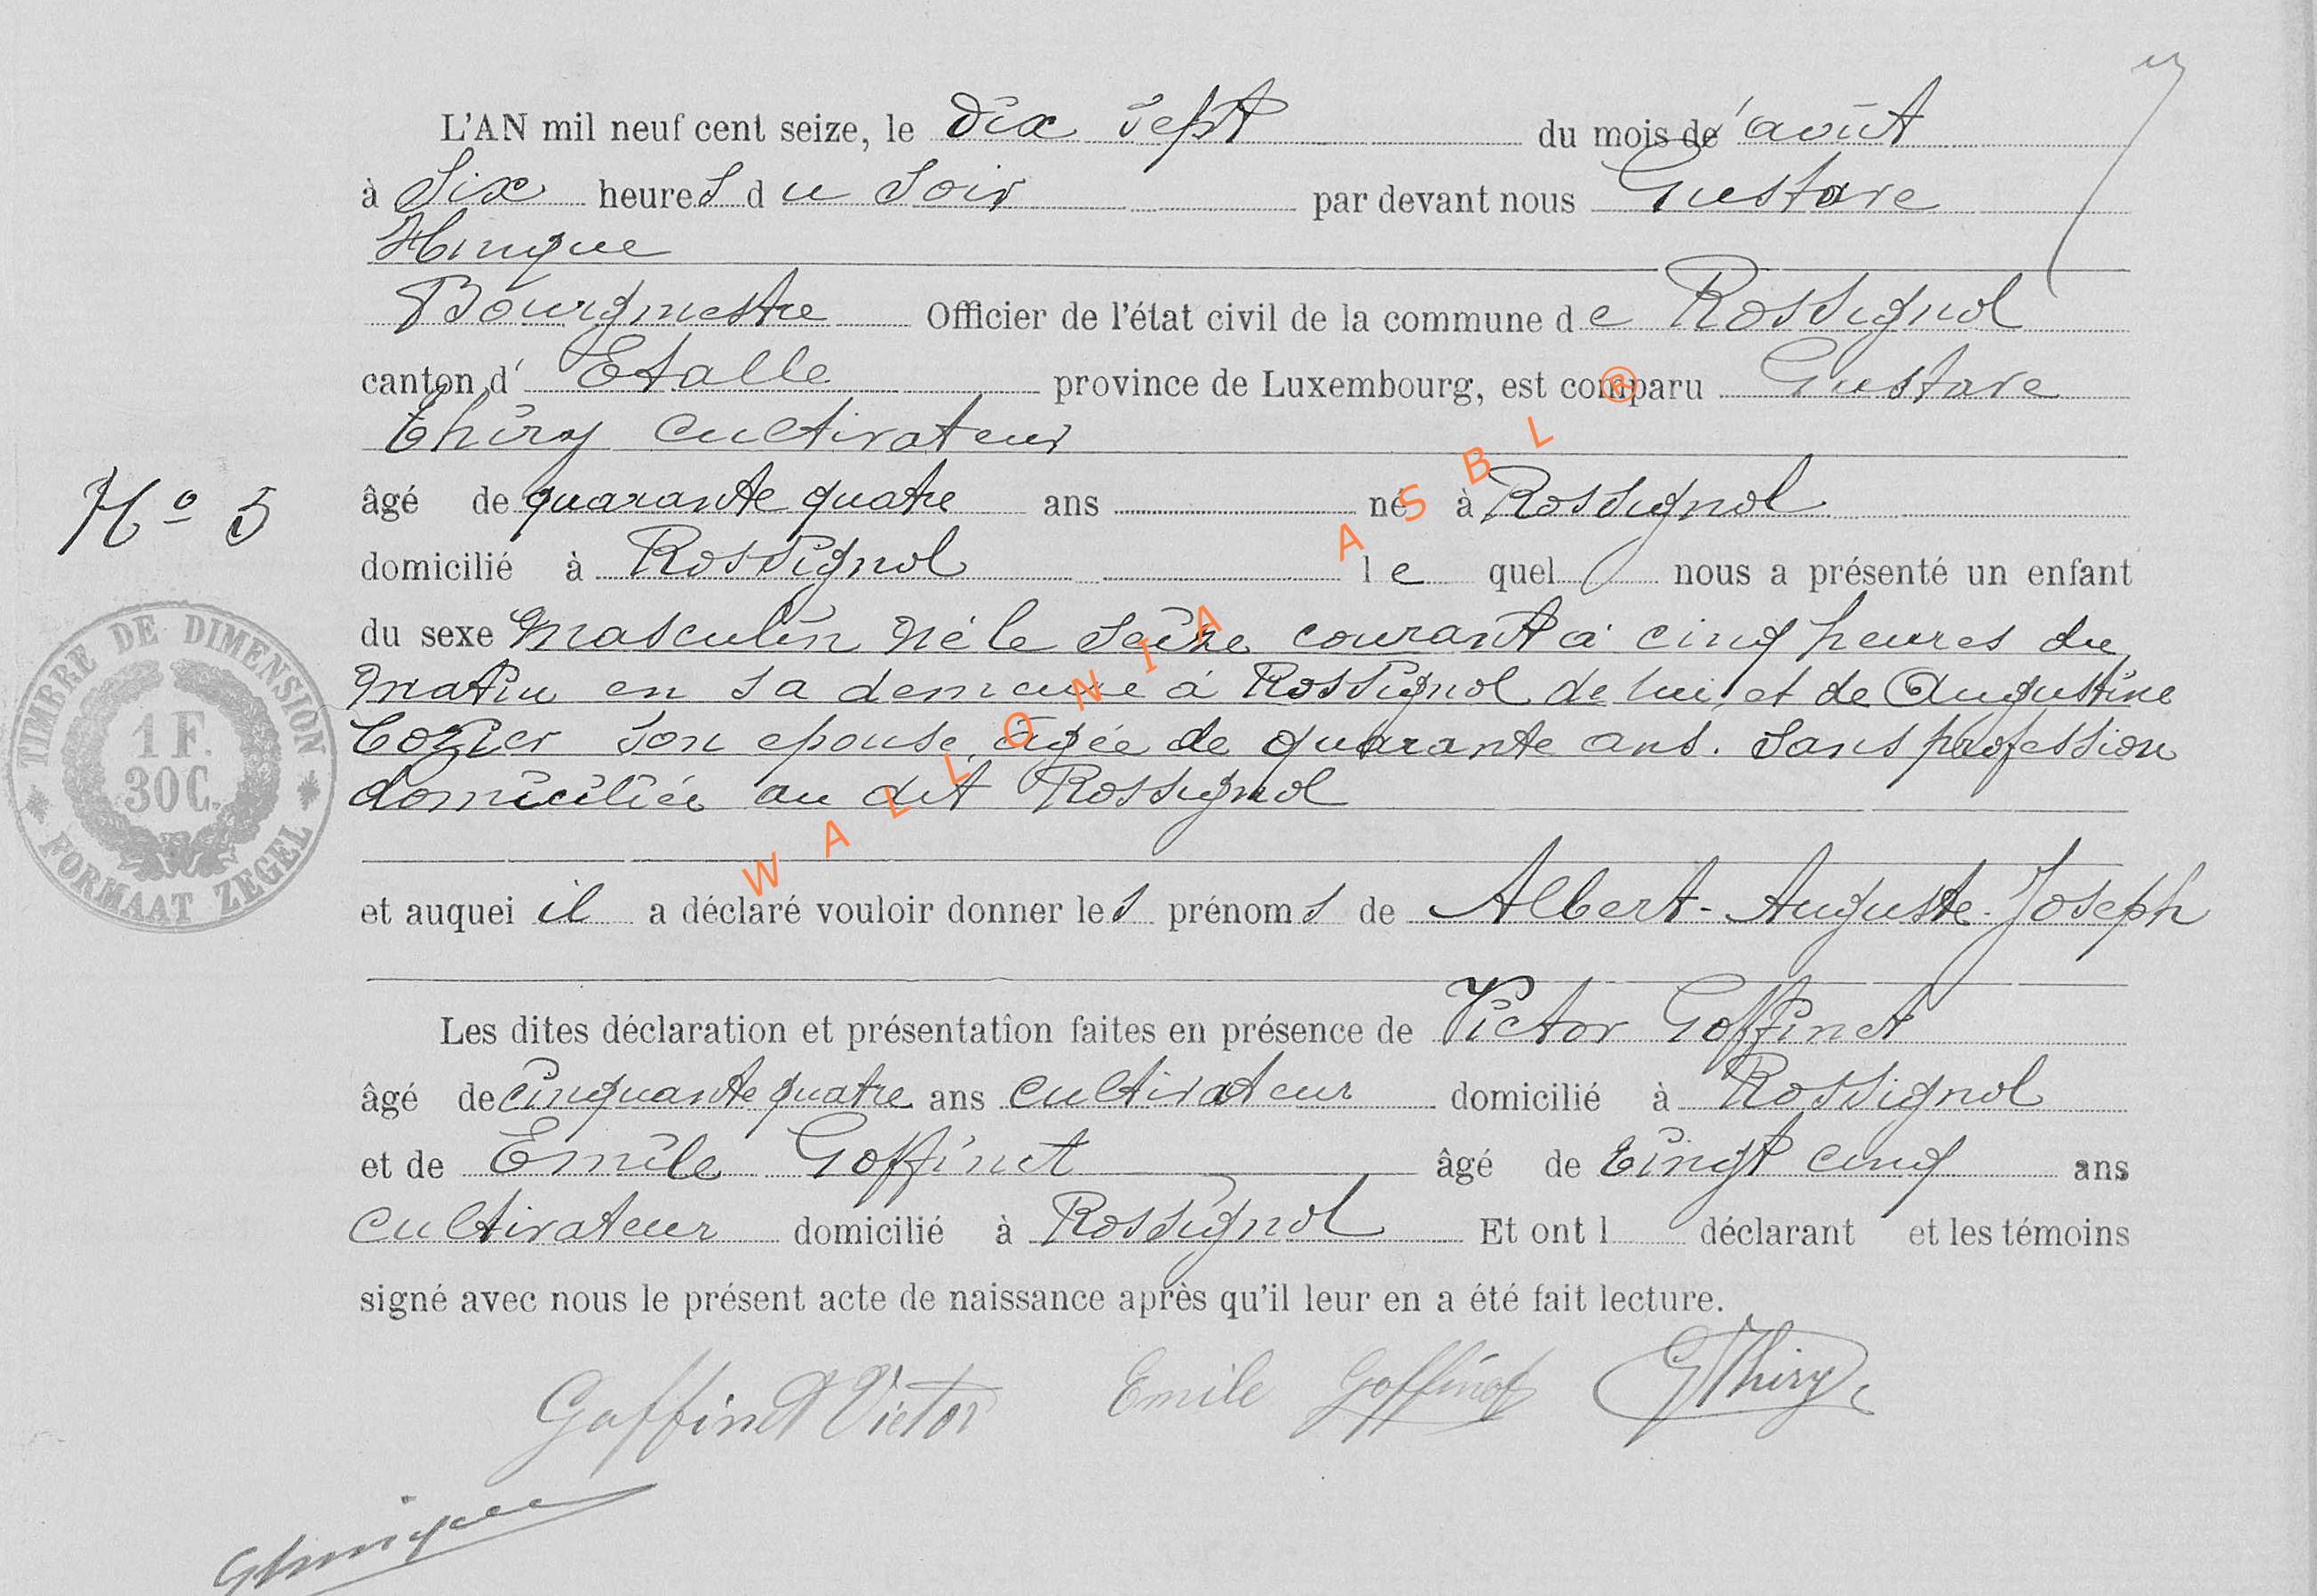 L'AN mil neuf cent seize, le Dix Sept du mois de août
à Six heures du Soir par devant nous Gustave
Hinque
Bourgmestre Officier de l'état civil de la commune de Rossignol
canton d' Etalle province de Luxembourg, est comparu Gustave
Thiry cultivateur
N° 5
âgé de quarante quatre ans né à Rossignol
domicilié à Rossignol lequel nous a présenté un enfant
du sexe Masculin né le seize courant à cinq heures du
matin en sa demeure à Rossignol de lui et de Augustine
Cozier son épouse agée de quarante ans. Sans profession
domiciliée au dit Rossignol
et auquei il a déclaré vouloir donner les prénoms de Albert-Auguste-Joseph
Les dites déclaration et présentation faites en présence de Victor Goffinet
âgé de cinquante quatre ans cultivateur domicilié à Rossignol
et de Emile Goffinet âgé de vingt cinq ans
cultivateur domicilié à Rossignol Et ont l déclarant et les témoins
signé avec nous le présent acte de naissance après qu'il leur en a été fait lecture.
Goffinet Victor Emile Goffinet G Thiry
GHinque
TIMBRE DE DIMENSION
1 F.
30 C.
FORMAAT ZEGEL
WALLONIA ASBL ®